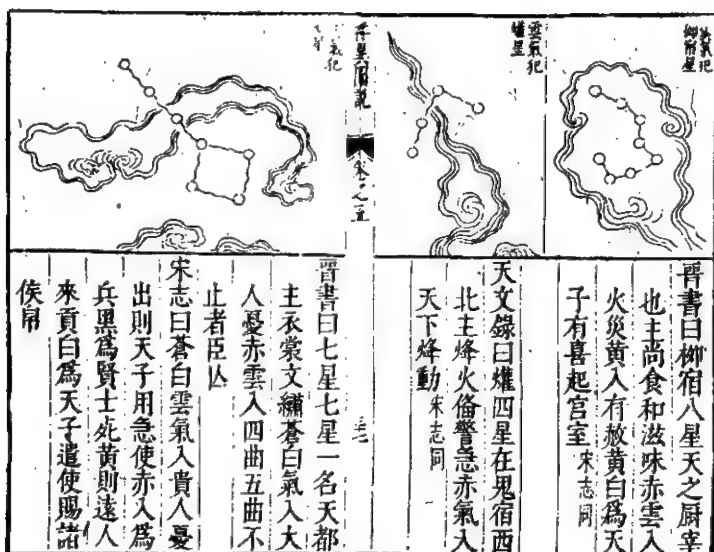 雲氣犯
柳宿星
晉書曰柳宿八星天之厨宰
也主尚食和滋味赤雲入
火災黄入有赦黄白爲天
子有喜起宫室宋志同
雲氣犯
爟星
天文錄曰爟四星在鬼宿西
北主烽火俻警急赤氣入
天下烽動宋志同
氣犯
星
晉書曰七星七星一名天都
主衣裳文繡蒼白氣入大
人憂赤雲入四曲五曲不
止者臣亾
宋志曰蒼白雲氣入貴人憂
出則天子用急使赤入爲
兵黑爲賢士死黄則遠人
來貢白爲天子遣使賜諸
侯帛